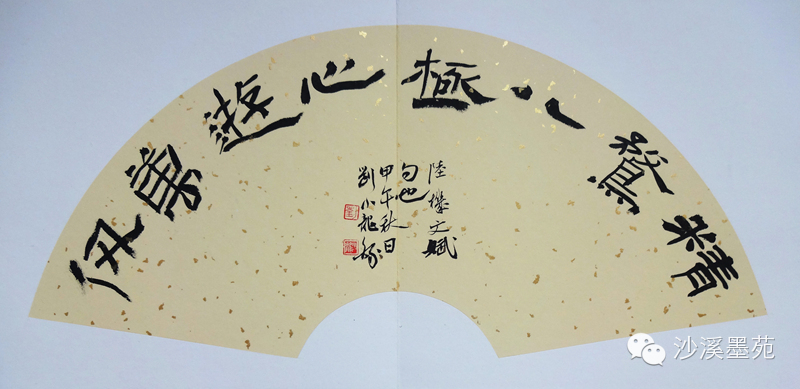 精鶩八極心遊萬仞
陸機文賦
句也
甲午秋日
劉小龍錄
沙溪墨苑